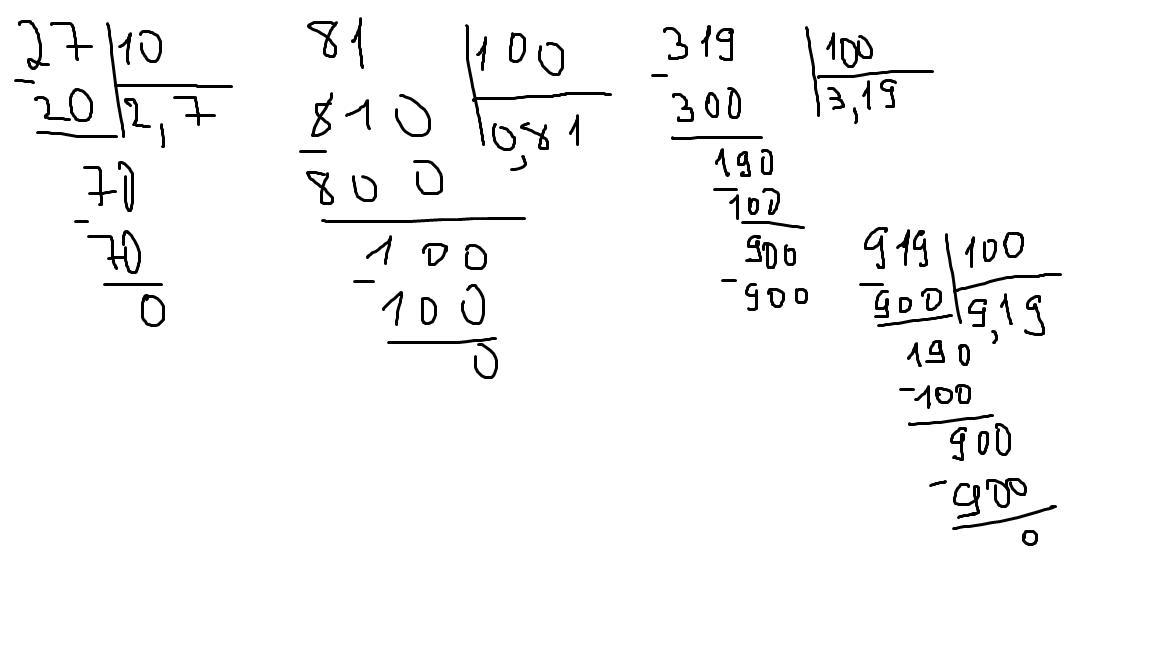 27 10
- 20 2,7
70
- 70
0
81 100
810 0,81
- 800
100
- 100
0
319 100
- 300 3,19
190
- 100
900
- 900
919 100
- 900 9,19
190
- 100
900
- 900
0